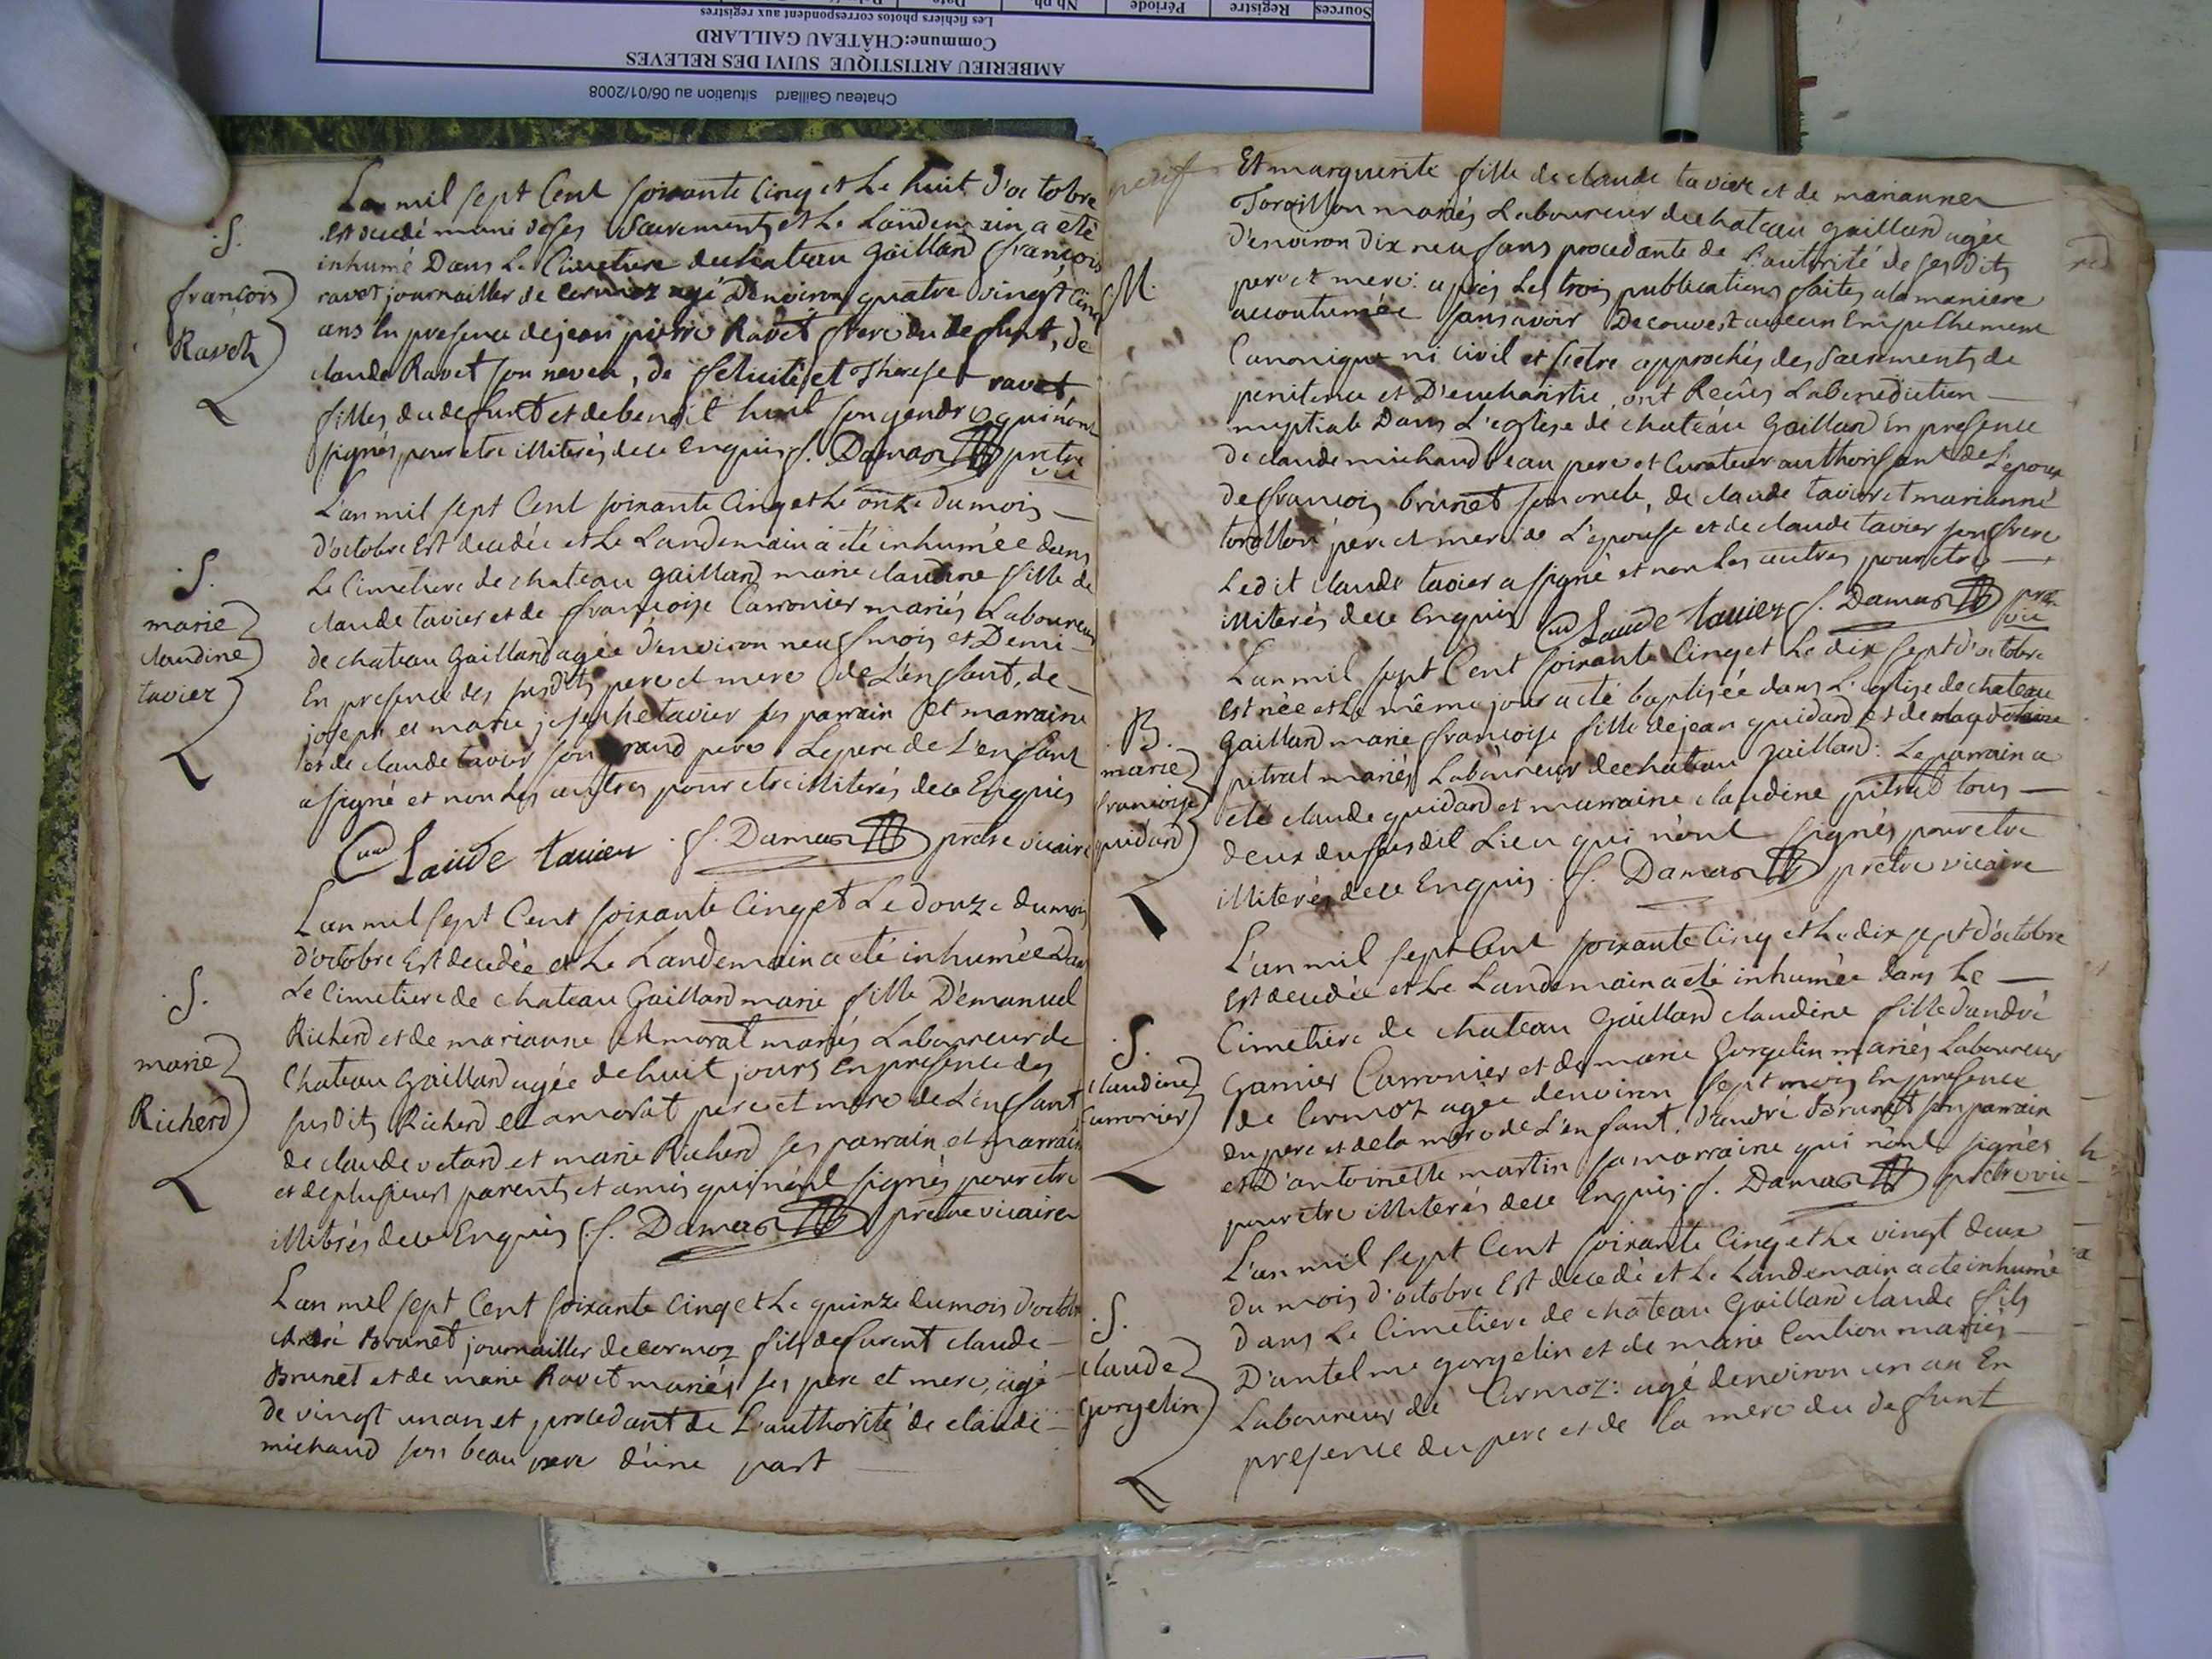 Chateau Gaillard situation au 06/01/2008
AMBERIEU ARTISTIQUE SUIVI DES RELEVES
Commune:CHÂTEAU GAILLARD
Les fichiers photos correspondent aux registres
Sources Registre Période Nb ph
L'an mil sept Cent soixante Cinq et Le huit d'octobre
est decedé muni de ses Sacrements et Le Landemain a eté
inhumé Dans Le Cimetiere de chateau Gaillard françois
ravet journailler de Cormoz agé D'environ quatre vingt Cinq
ans En presence de jean pierre Ravet frere du defunt, de
claude Ravet son neveu, de felicité et Therese ravet
filles du defunt et de benoit huit son gendre qui n'ont
signés pour etre illiterés de ce Enquis f. Damas pretre
vic
.S.
françois
Ravet
L'an mil sept Cent soixante Cinq et Le onze du mois
d'octobre Est decedée et Le Landemain a eté inhumée dans
Le Cimetiere de chateau gaillard marie claudine fille de
claude tavier et de françoise Carronier mariés Laboureur
de chateau Gaillard agée d'environ neuf mois et Demi
En presence des susdits pere et mere de L'enfant, de
joseph et marie josephe tavier ses parrain et marraine
et de claude tavier son grand pere Le pere de L'enfant
a signé et non Les autres pour etre illiterés de ce Enquis
Claude tavier f. Damas pretre vicaire
.S.
marie
claudine
tavier
L'an mil sept Cent soixante Cinq et Le douze du mois
d'octobre Est decedée et Le Landemain a eté inhumée Dans
Le Cimetiere de chateau Gaillard marie fille D'emanuel
Richerd et de marianne Amorat mariés Laboureur de
Chateau Gaillard agée de huit jours En presence des
susdits Richerd et amorat pere et mere de L'enfant
de claude vetard et marie Richerd ses parrain et marraine
et de plusieurs parents et amis qui n'ont signés pour etre
illiterés de ce Enquis f. Damas pretre vicaire
.S.
marie
Richerd
L'an mil sept Cent soixante Cinq et Le quinze du mois d'octobre
André Brunet journailler de cormoz fils de furent claude
Brunet et de marie Ravet mariés ses pere et mere, agé
de vingt un an et procedant de L'authorité de claude
michaud son beau pere d'une part
Et marguerite fille de claude tavier et de marianne
Toraillon mariés Laboureur de chateau gaillard agée
d'environ dix neuf ans procedante de L'autorité de ses Dits
pere et mere: après Les trois publications faites a la maniere
accoutumée sans avoir Decouvert aucun Empechement
Canonique ni civil et s'etre approchés des Sacrements de
penitence et D'eucharistie, ont Reçus La benediction
nuptiale Dans L'eglise de chateau Gaillard En presence
de claude michaud beau pere et Curateur authorisant de L'epoux
de françois brunet son oncle, de claude tavier et marianne
torallon pere et mere de L'epouse et de claude tavier son frere
Ledit claude tavier a signé et non Les autres pour etre
illiterés de ce Enquis Claude tavier f. Damas pretre
vic
M.
L'an mil sept Cent soixante Cinq et Le dix sept d'octobre
est née et Le même jour a eté baptisée dans L'eglise de chateau
Gaillard marie françoise fille de jean guidard et de magdelaine
petrat mariés Laboureur de chateau gaillard: Le parrain a
eté claude guidard et marraine claudine petrat tous
deux du susdit Lieu qui n'ont signés pour etre
illiterés de ce Enquis. f. Damas pretre vicaire
B.
marie
françoise
guidard
L'an mil sept Cent soixante Cinq et Le dix sept d'octobre
Est decedée et Le Landemain a eté inhumée dans Le
Cimetiere de chateau Gaillard claudine fille d'andré
Garnier Carronier et de marie Gorgelin mariés Laboureur
de Cormoz agée d'environ sept mois En presence
du pere et de la mere de L'enfant, d'andré Brunet son parrain
et D'antoinette martin sa marraine qui n'ont signés
pour etre illiterés de ce Enquis f. Damas pretre vic
.S.
claudine
Carronier
L'an mil sept Cent soixante Cinq et Le vingt deux
du mois d'octobre Est decedé et Le Landemain a eté inhumé
Dans Le Cimetiere de chateau Gaillard claude fils
D'antelme gorgelin et de marie Contion mariés
Laboureur de Cormoz: agé d'environ un an En
presence du pere et de la mere du defunt
.S.
claude
gorgelin